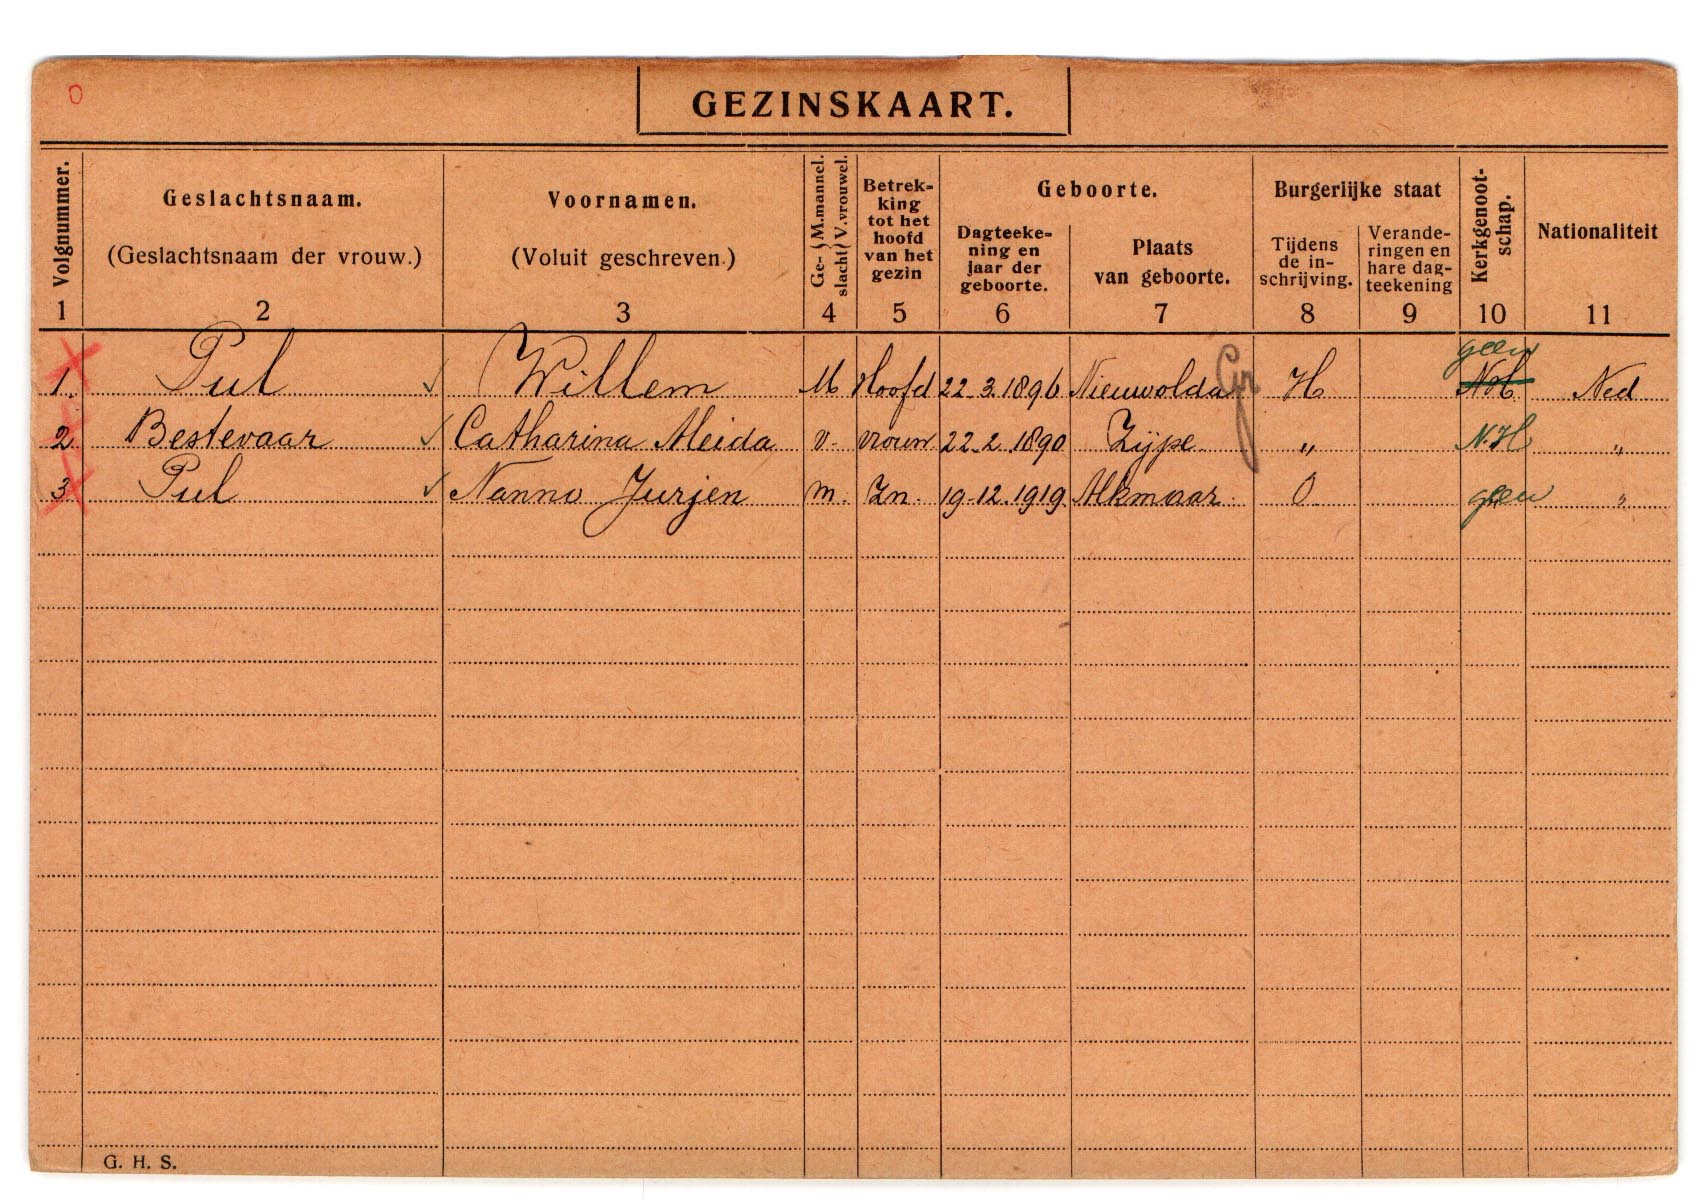 0
GEZINSKAART.
Volgnummer.
1
Geslachtsnaam.
(Geslachtsnaam der vrouw.)
2
Voornamen.
(Voluit geschreven.)
3
Ge- { M.mannel.
slacht { V.vrouwel.
4
Betrek-
king
tot het
hoofd
van het
gezin
5
Geboorte.
Dagteeke-
ning en
jaar der
geboorte.
6
Plaats
van geboorte.
7
Burgerlijke staat
Tijdens
de in-
schrijving.
8
Verande-
ringen en
hare dag-
teekening
9
Kerkgenoot-
schap.
10
Nationaliteit
11
geen
1. Pul Willem M Hoofd 22-3.1896 Nieuwolda Gr H N.H. Ned
2 Bestevaar Catharina Aleida v. vrouw 22-2.1890 Zijpe „ N.H „
3 Pul Nanno Jurjen m. Zn. 19-12.1919. Alkmaar. O geen „
G. H. S.